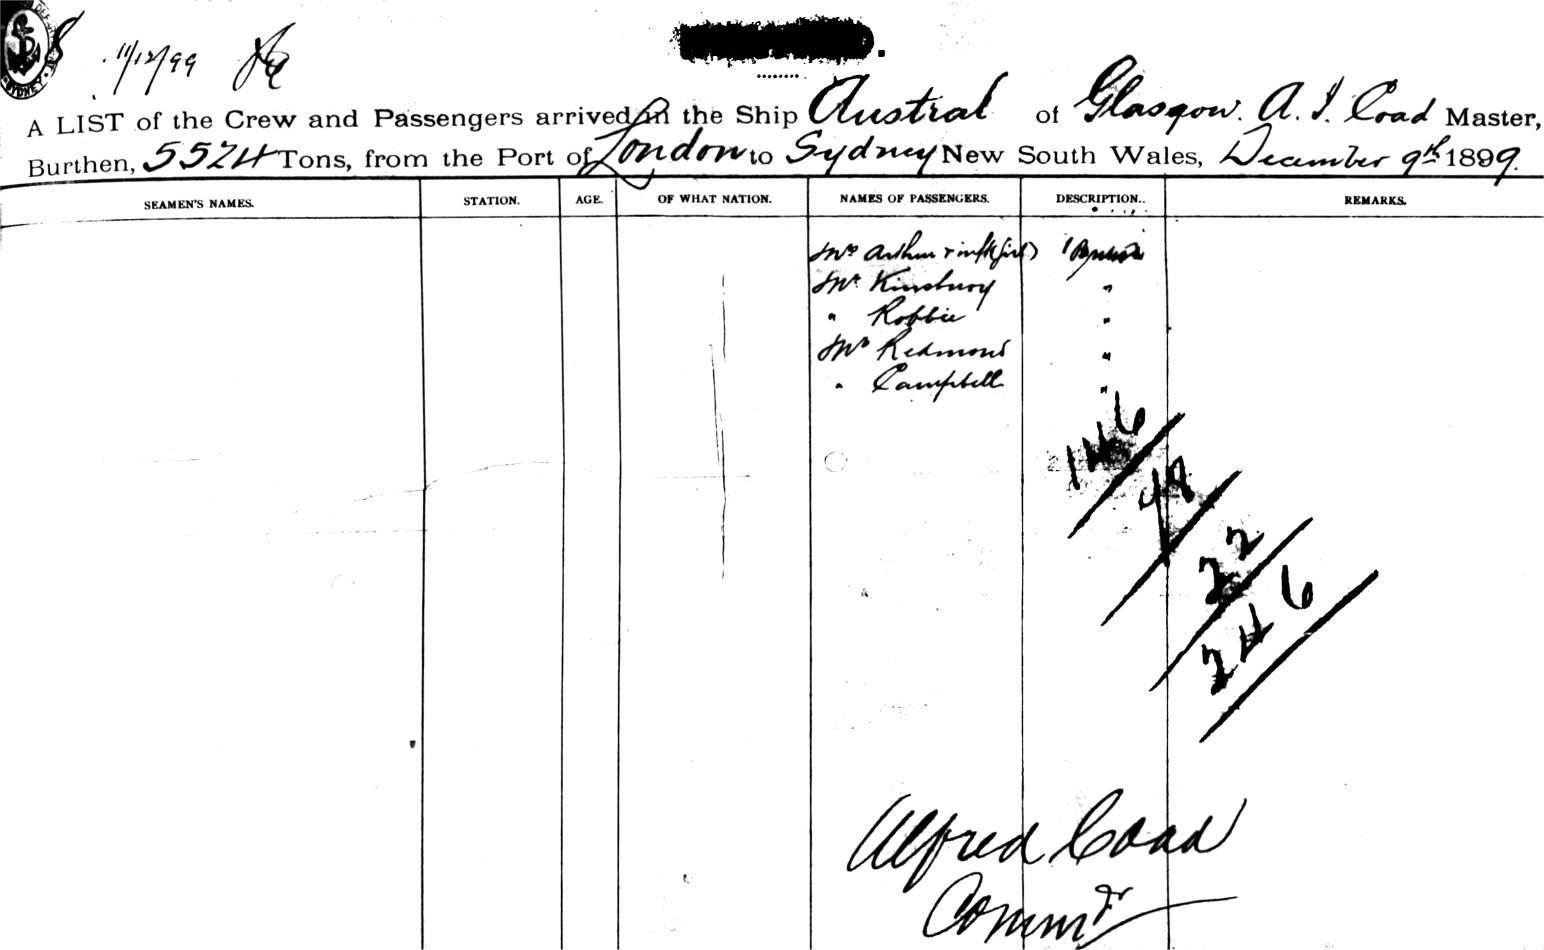 SYDNEY
11/12/99
A LIST of the Crew and Passengers arrived in the Ship Austral of Glasgow. A. J. Coad Master,
Burthen, 5524 Tons, from the Port of London to Sydney New South Wales, December 9th 1899.
SEAMEN'S NAMES. STATION. AGE. OF WHAT NATION. NAMES OF PASSENGERS. DESCRIPTION. REMARKS.
Mrs Arthur + inft (girl)
Mr Kinsbury "
" Robbie "
Mrs Redmond "
" Campbell "
146
78
22
246
Alfred Coad
Commr